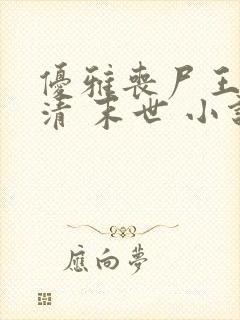 優雅喪尸王
清 末世 小說
應向夢